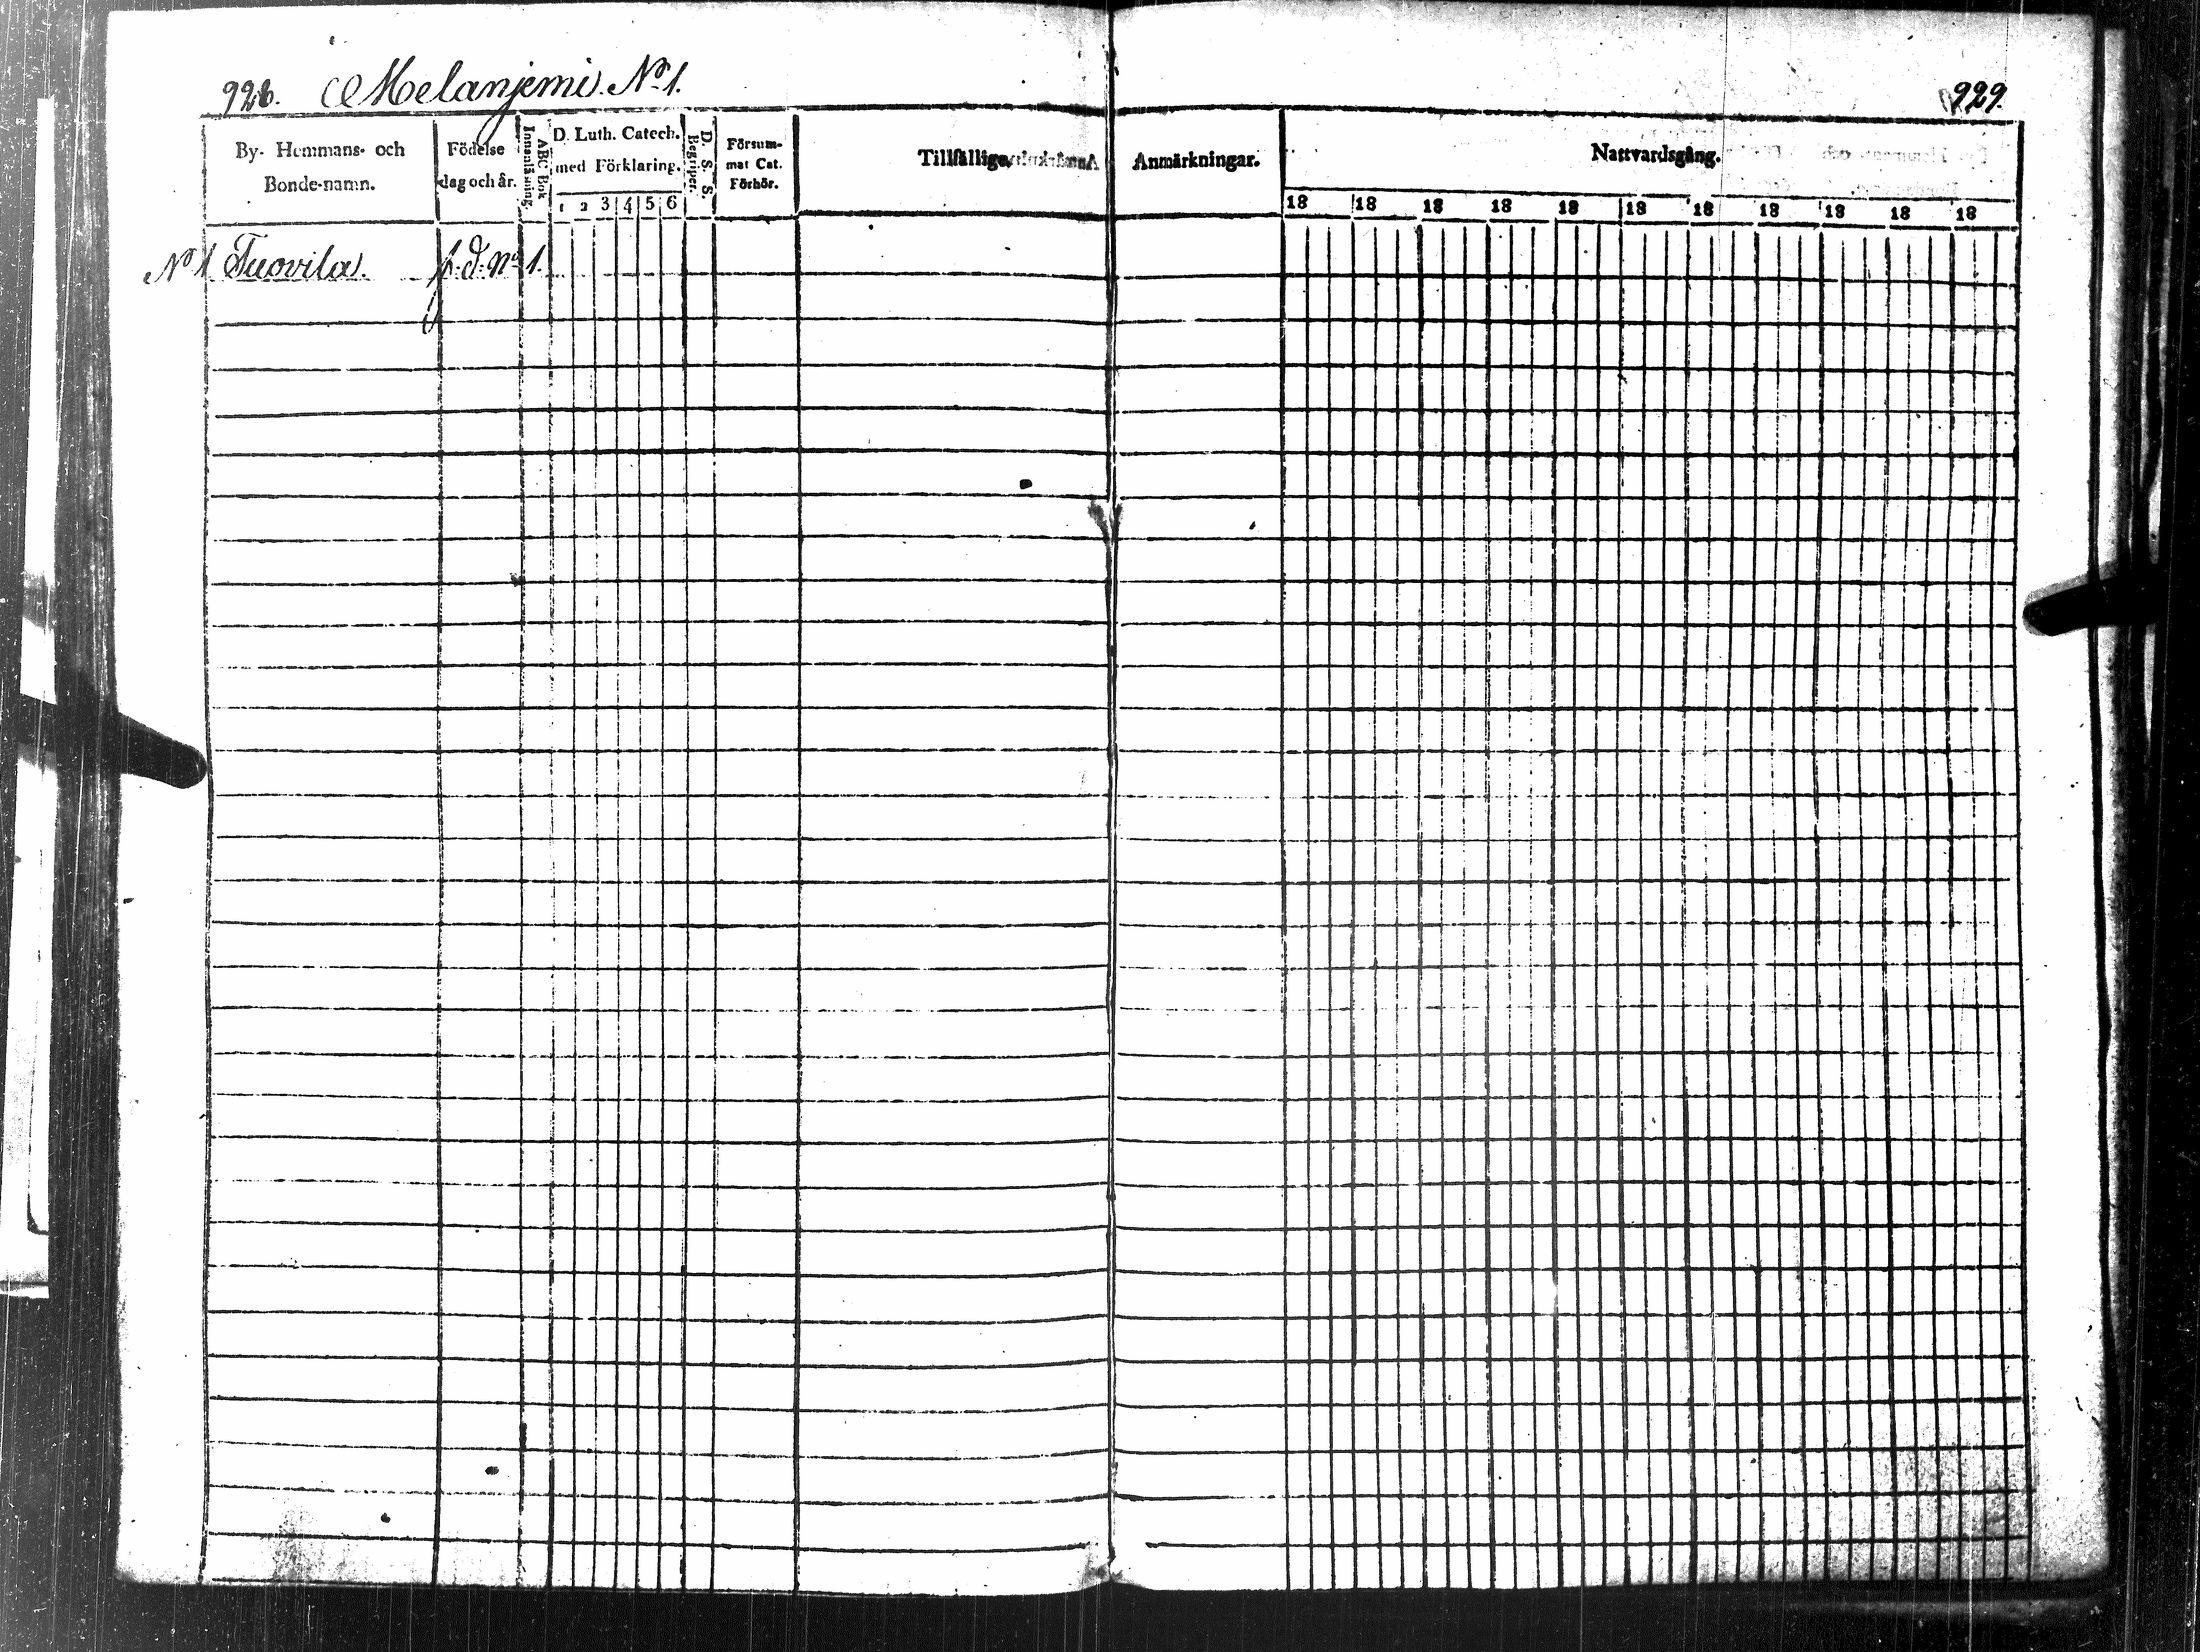 928. Melanjemi. No 1.
929.
By- Hemmans- och Bonde-namn.
Födelse dag och år.
ABC-Bok Innanläsning.
D. Luth. Catech. med Förklaring.
1 2 3 4 5 6
D. S. S. Begriper.
Försum- mat Cat. Förhör.
Tillfällige
Anmärkningar.
Nattvardsgång.
18 18 18 18 18 18 18 18 18 18 18
No 1 Tuovila. f. d. No 1.